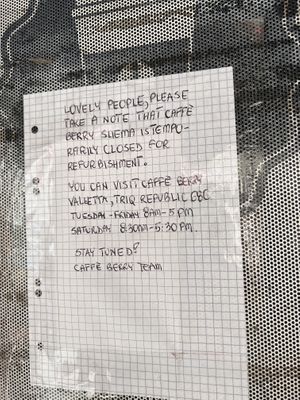 LOVELY PEOPLE, PLEASE
TAKE A NOTE THAT CAFFÈ
BERRY SLIEMA IS TEMPO-
RARILY CLOSED FOR
REFURBISHMENT.
YOU CAN VISIT CAFFÈ BERRY
VALLETTA, TRIQ REPUBLIC
TUESDAY - FRIDAY 8AM - 5 PM
SATURDAY 8:30AM - 5:30 PM.
STAY TUNED!
CAFFÈ BERRY TEAM